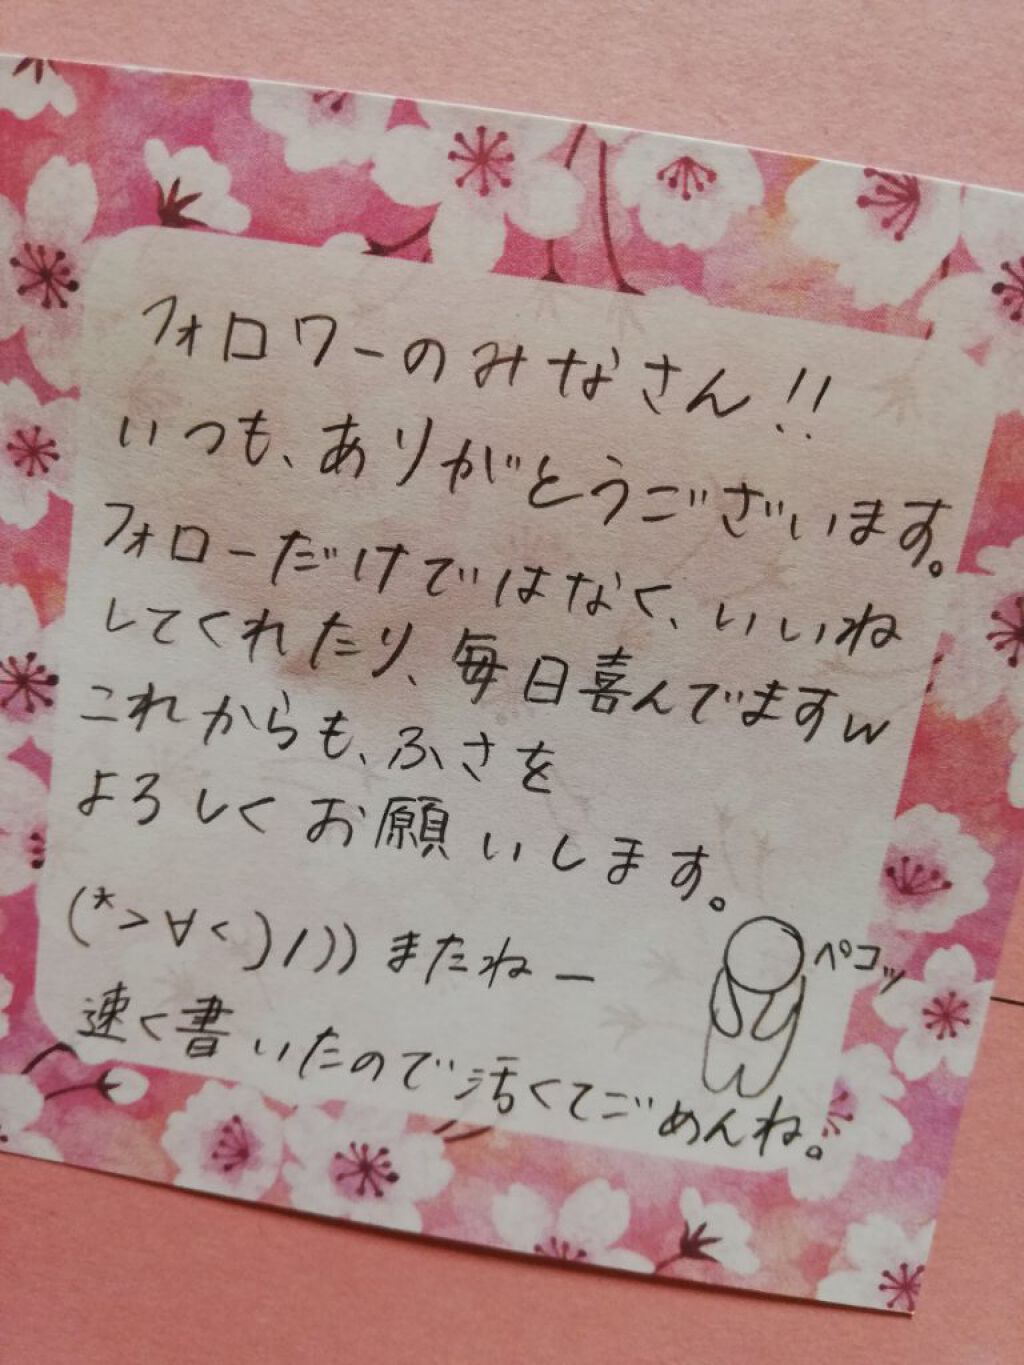 フォロワーのみなさん!!
いつも、ありがとうございます。
フォローだけではなく、いいね
してくれたり、毎日喜んでますw
これからも、ふさを
よろしくお願いします。
(*>∀<)ﾉ))またねー
ペコッ
速く書いたので活くてごめんね。